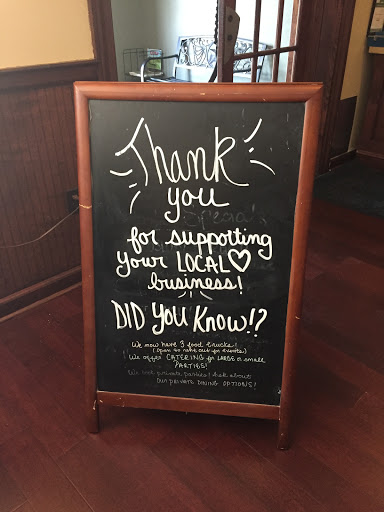 Thank
you
for supporting
your LOCAL
business!
DID YOU KNOW!?
We now have 3 food trucks!
(open to rent out for events)
We offer CATERING for LARGE & small
PARTIES!
We host private parties! Ask about
our private DINING OPTIONS!